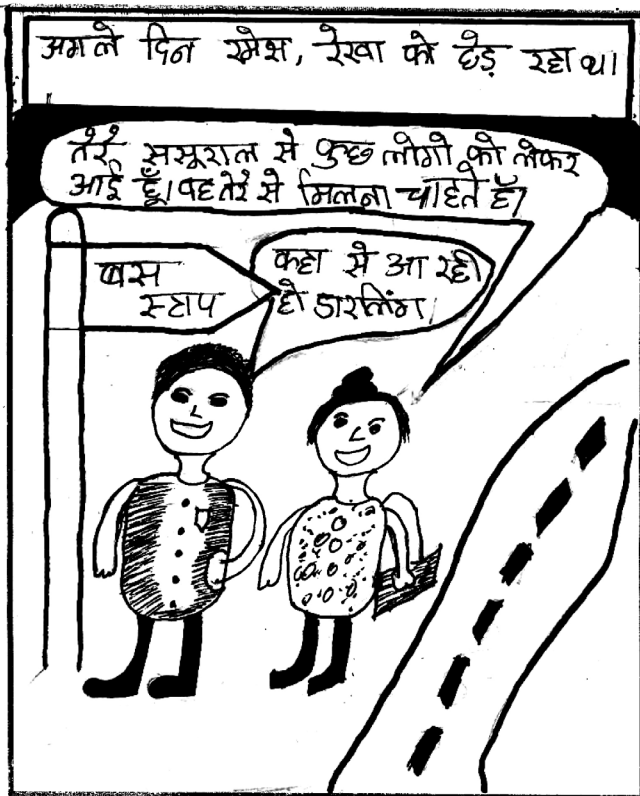 अगले दिन रमेश, रेखा को छेड़ रहा था।
तेरे ससूराल से कुछ लोगो को लेकर
आई हूँ। वह तेरे से मिलना चाहते हैं।
कहा से आ रही
हो डारलिंग।
बस
स्टाप